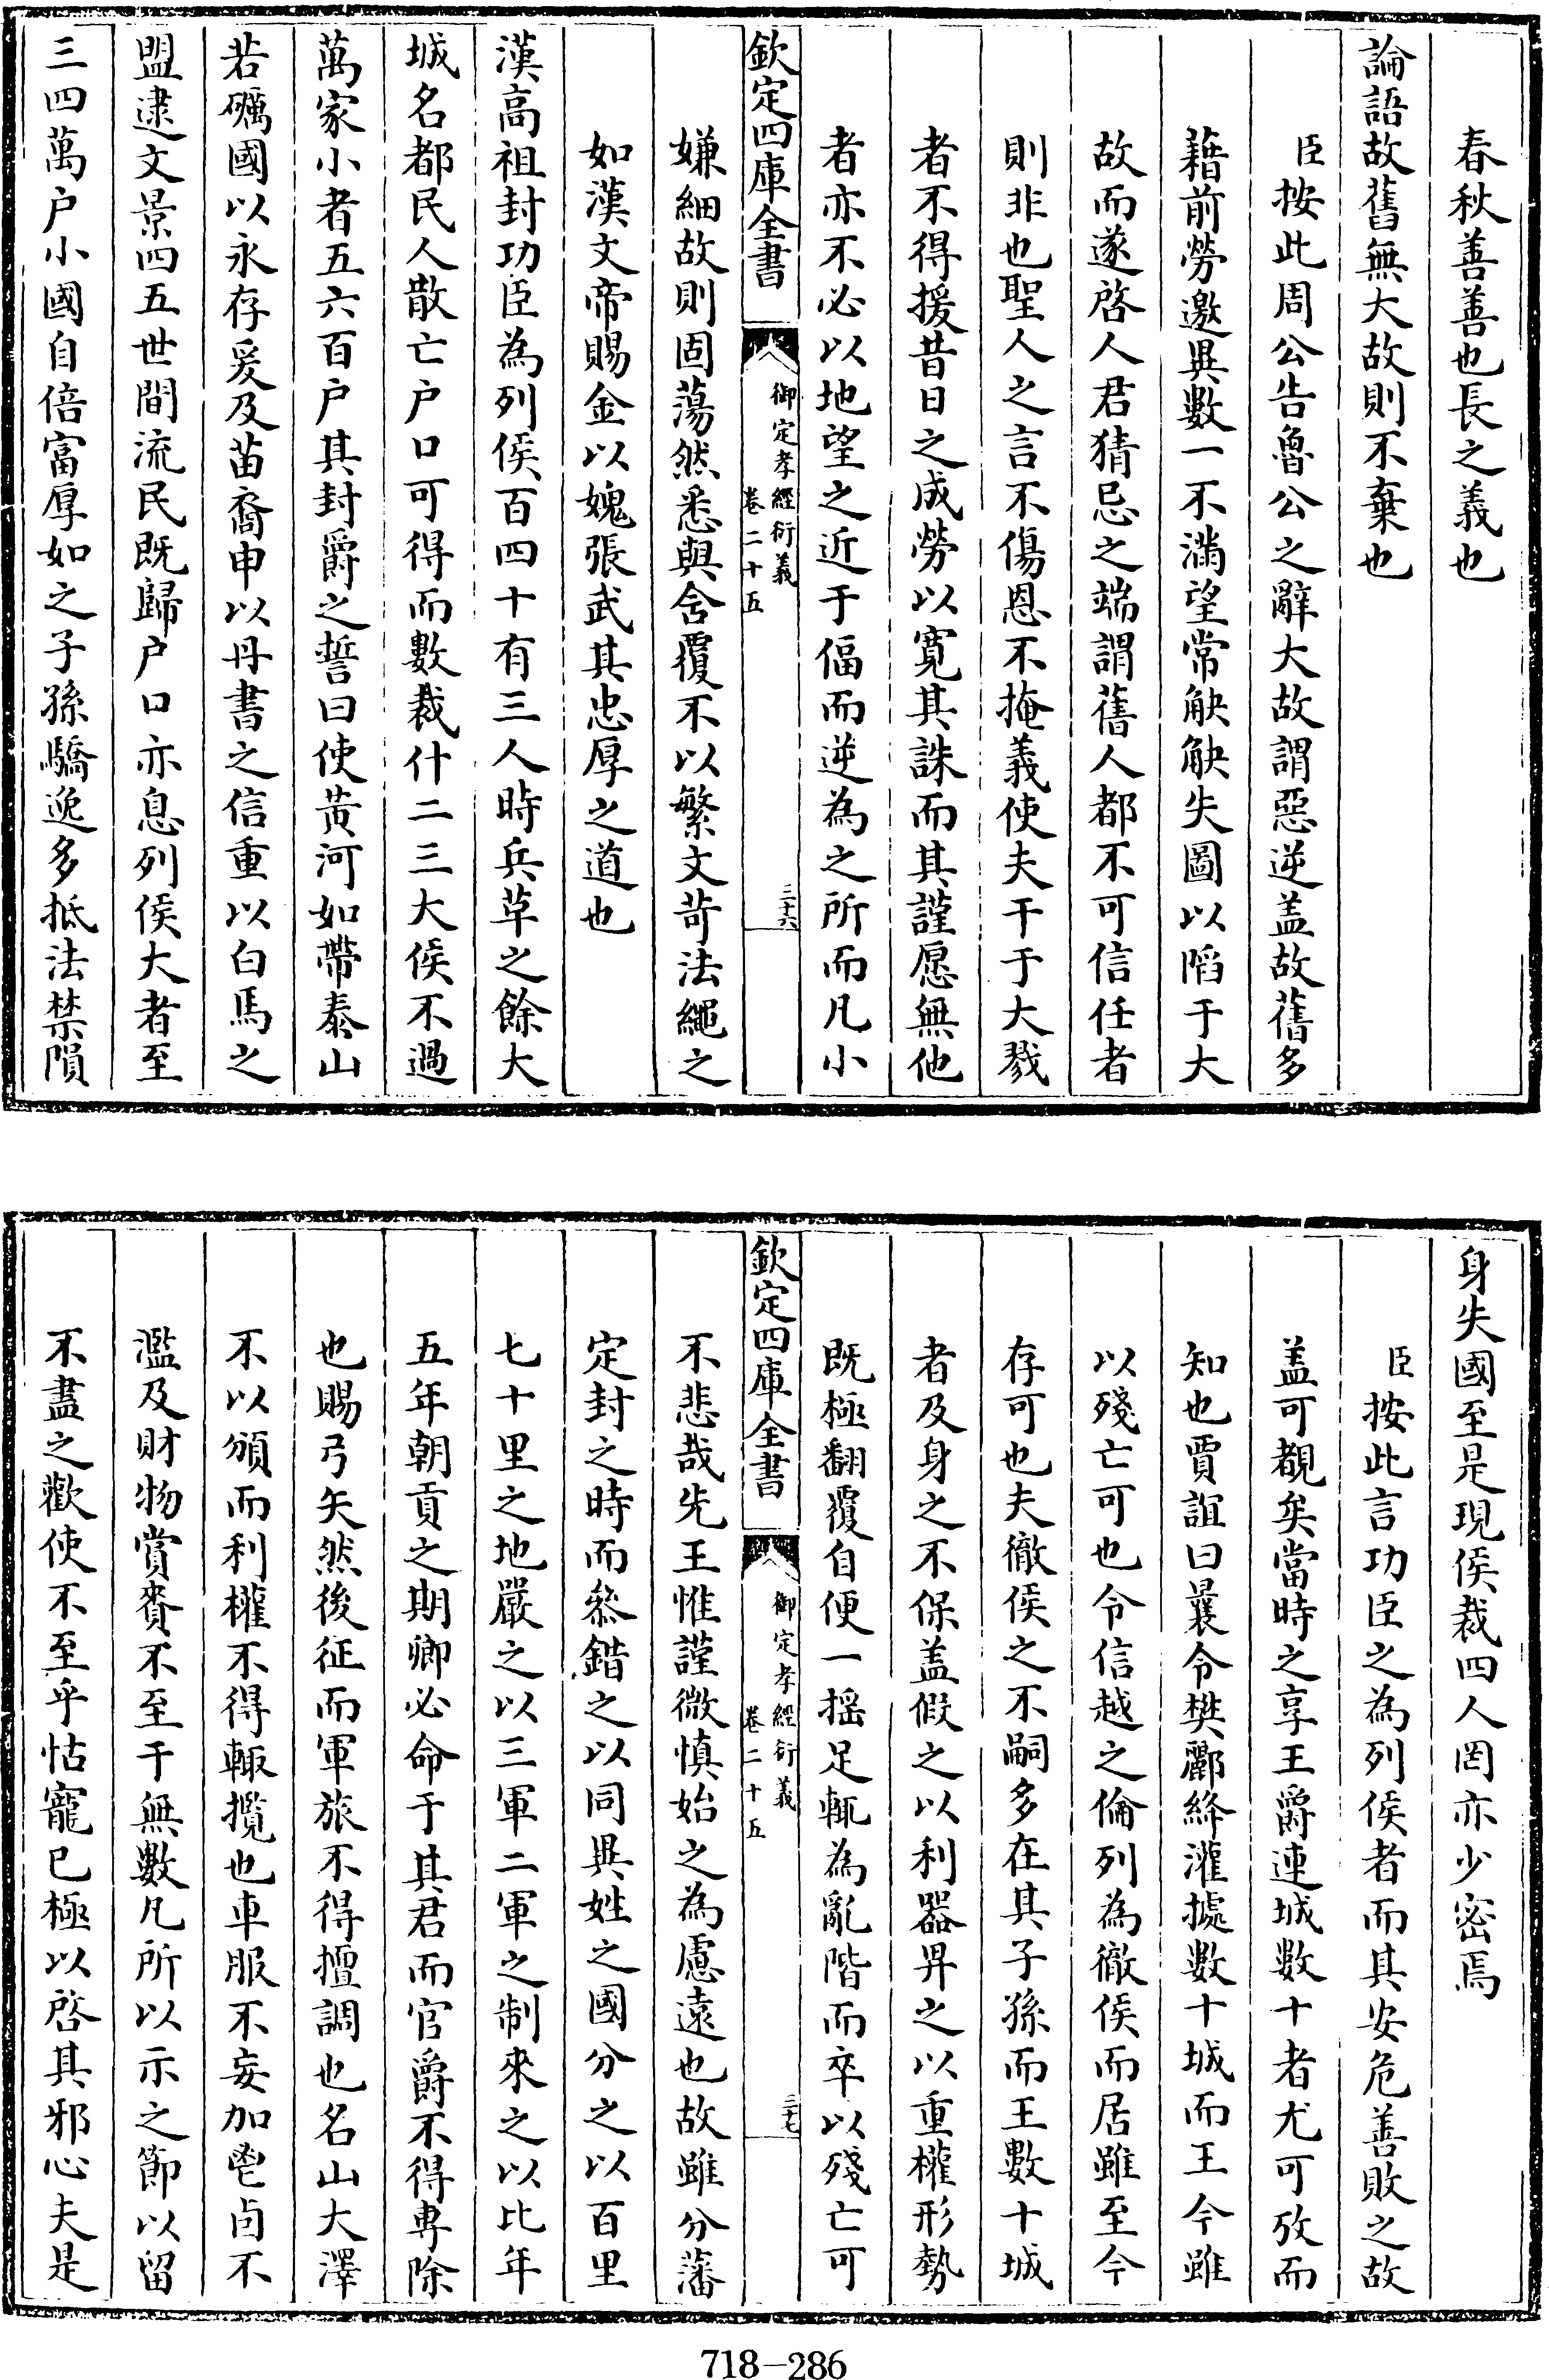 春秋善善也長之義也
論語故舊無大故則不棄也
臣按此周公告魯公之辭大故謂惡逆盖故舊多
藉前勞邀異數一不滿望常觖觖失圖以陷于大
故而遂啓人君猜忌之端謂舊人都不可信任者
則非也聖人之言不傷恩不掩義使夫干于大戮
者不得援昔日之成勞以寬其誅而其謹愿無他
者亦不必以地望之近于偪而逆為之所而凡小
欽定四庫全書
御定孝經衍義
卷二十五
三十六
嫌細故則固蕩然悉與舍覆不以繁文苛法繩之
如漢文帝賜金以媿張武其忠厚之道也
漢高祖封功臣為列侯百四十有三人時兵革之餘大
城名都民人散亡户口可得而數裁什二三大侯不過
萬家小者五六百户其封爵之誓曰使黃河如帶泰山
若礪國以永存爰及苗裔申以丹書之信重以白馬之
盟逮文景四五世間流民既歸户口亦息列侯大者至
三四萬户小國自倍富厚如之子孫驕逸多抵法禁隕
身失國至是現侯裁四人罔亦少密焉
臣按此言功臣之為列侯者而其安危善敗之故
盖可覩矣當時之享王爵連城數十者尤可攷而
知也賈誼曰曩令樊酈絳灌據數十城而王今雖
以殘亡可也令信越之倫列為徹侯而居雖至今
存可也夫徹侯之不嗣多在其子孫而王數十城
者及身之不保盖假之以利器畀之以重權形勢
既極翻覆自便一摇足輒為亂階而卒以殘亡可
欽定四庫全書
御定孝經衍義
卷二十五
三十七
不悲哉先王惟謹微慎始之為慮遠也故雖分藩
定封之時而叅錯之以同異姓之國分之以百里
七十里之地嚴之以三軍二軍之制來之以比年
五年朝貢之期卿必命于其君而官爵不得專除
也賜弓矢然後征而軍旅不得擅調也名山大澤
不以頒而利權不得輙攬也車服不妄加鬯卣不
濫及財物賞賚不至于無數凡所以示之節以留
不盡之歡使不至乎怙寵已極以啓其邪心夫是
718-286